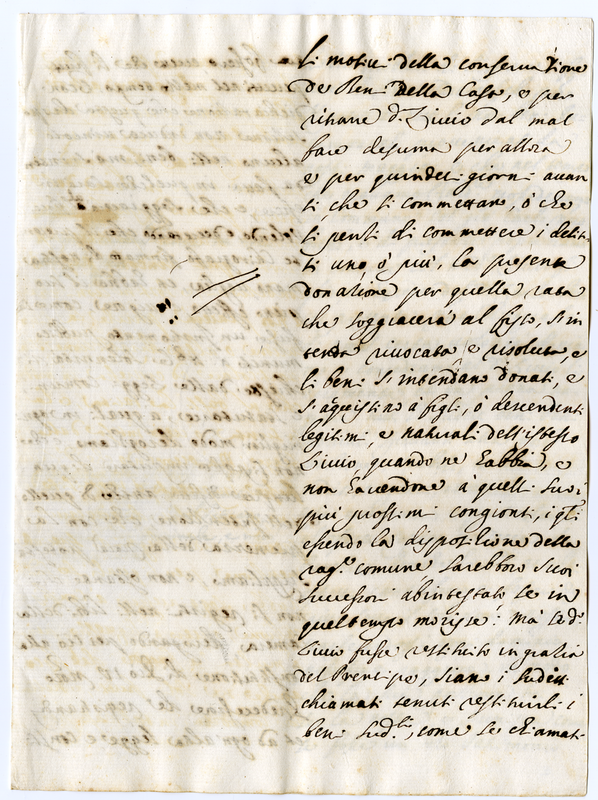 li motivi della conservatione
de Beni della Casa, e per
ritrare d.º Livio dal mal
fare desuma per allora
e per quindeci giorni avan
ti che si commettano, ò che
si pensi di commettere i delit-
ti uno, ò più, la presente
donatione per quella rata
che soggiacerà al fisco, s'in
tenda rivocata, e risoluta, e
li beni s'intendano donati, e
s'aquistino à figli, ò descendenti
legitimi, e naturali dell'istesso
Livio, quando ne habbia, e
non havendone à quelli suoi
più prossimi congionti, i q.li
essendo la dispositione della
rag.e comune sarebboro suoi
successori abintestato se in
quel tempo morisse: mà se d.º
Livio fusse restituito in gratia
del Prencipe, siano i sudetti
chiamati tenuti restituirli i
beni sud.ti, come se chiamati